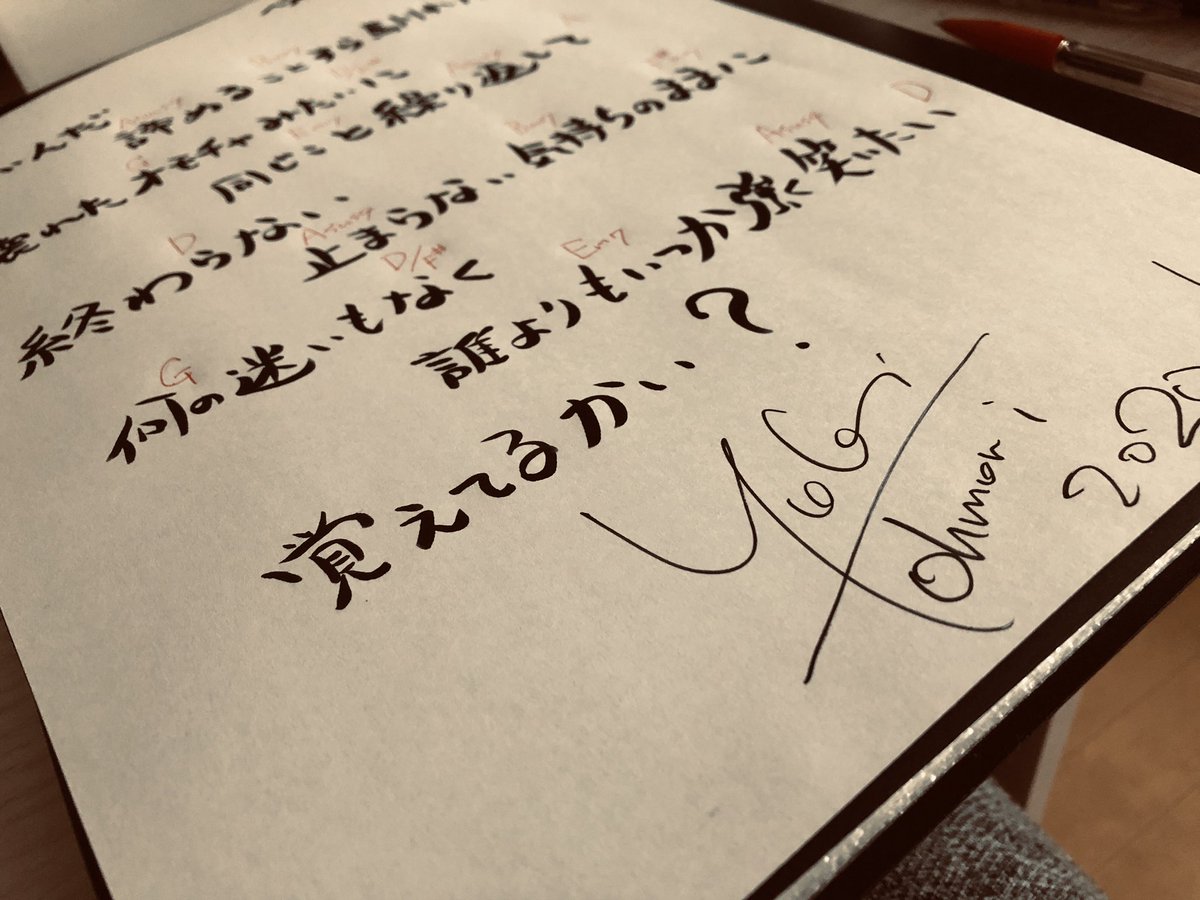 んだ 諦めることすら
壊れたオモチャみたいに
同じこと繰り返して
D Asus4 Bm7
終わらない 止まらない 気持ちのままに
G D/F# Em7 Asus4 D
何の迷いもなく 誰よりもいつか強く笑いたい
覚えてるか?
Tohmori
202